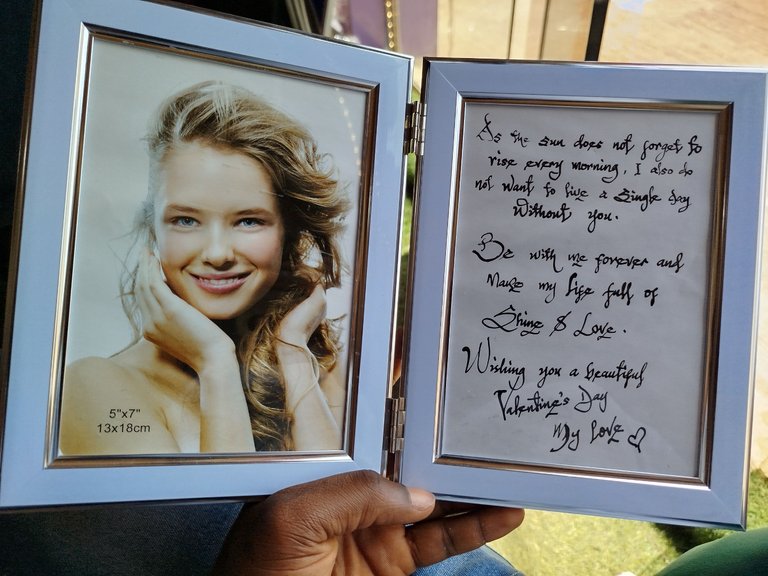 5"x7"
13x18cm
As the sun does not forget to
rise every morning, I also do
not want to live a single day
Without you.
Be with me forever and
Make my life full of
Shine & Love.
Wishing you a beautiful
Valentine's Day
My Love